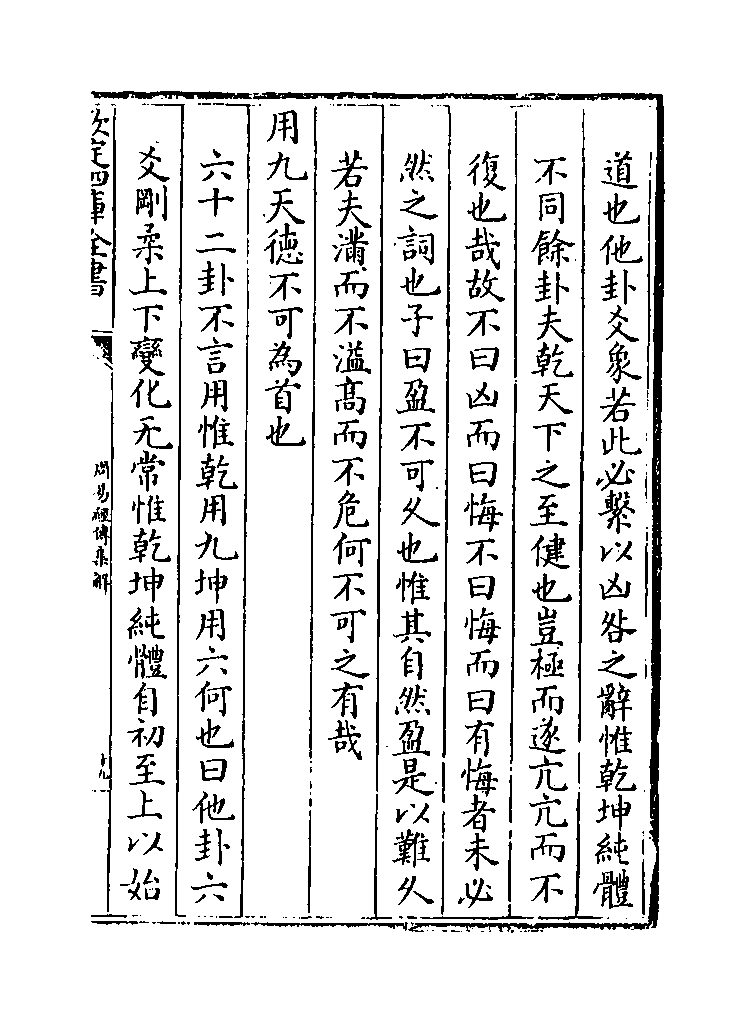 道也他卦爻象若此必繫以凶咎之辭惟乾坤純體
不同餘卦夫乾天下之至健也豈極而遂亢亢而不
復也哉故不曰凶而曰悔不曰悔而曰有悔者未必
然之詞也子曰盈不可久也惟其自然盈是以難久
若夫滿而不溢高而不危何不可之有哉
用九天德不可為首也
六十二卦不言用惟乾用九坤用六何也曰他卦六
爻剛柔上下變化无常惟乾坤純體自初至上以始
欽定四庫全書
周易經傳集解
十九